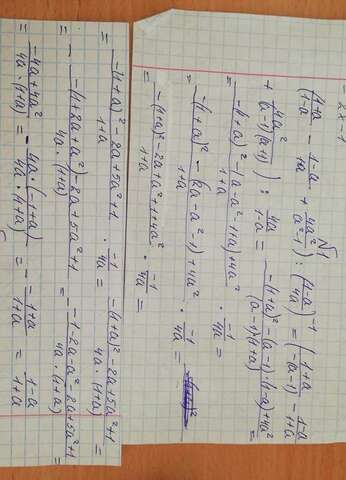 - 2x - 1
№1
(1+a/1-a - 1-a/1+a + 4a²/a²-1) : (1-a/4a)⁻¹ = (1+a/-(a-1) - 1-a/1+a
+ 4a²/(a-1)(a+1)) : 4a/1-a = -(1+a)²-(a-1)(1-a)+4a²/(a-1)(1+a)
= -(1+a)²-(a-a²-1+a)+4a²/1+a · -1/4a =
= -(1+a)²-(2a-a²-1)+4a²/1+a · -1/4a =
= -(1+a)²-2a+a²+1+4a²/1+a · -1/4a =
= -(1+a)²-2a+5a²+1/1+a · -1/4a = -(1+a)²-2a+5a²+1/4a·(1+a) =
= - -(1+2a+a²)-2a+5a²+1/4a·(1+a) = - -1-2a-a²-2a+5a²+1/4a·(1+a) =
= -4a+4a²/4a·(1+a) = - 4a·(-1+a)/4a·(1+a) = - -1+a/1+a = 1-a/1+a